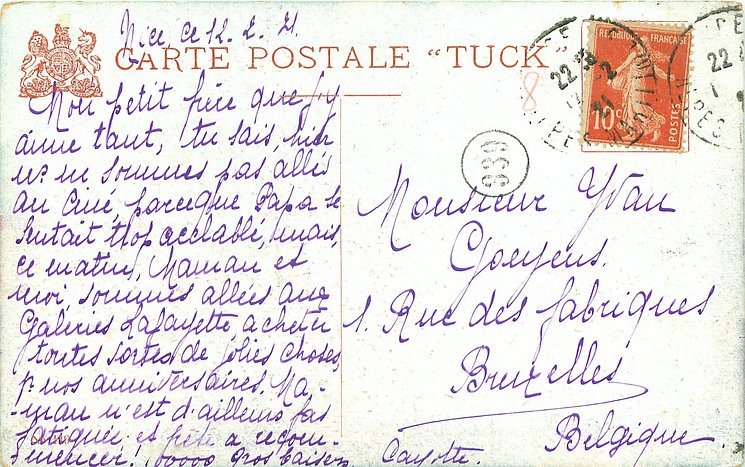 Nice, ce 12. 2. 21.
CARTE POSTALE "TUCK"
Mon petit frère que j'y
aime tant, tu sais, hier
ns. ne sommes pas allés
au Ciné, parceque Papa se
sentait trop acclablé, mais,
ce matin, Maman et
moi, sommes allées aux
Galeries Lafayette acheter
toutes sortes de jolies choses,
pr nos anniversaires. Ma-
-man n'est d'ailleurs pas
fatiguée et prête à recom-
-mencer! 10000 gros baisers
8
REPUBLIQUE FRANÇAISE
10c
POSTES
22
939
Monsieur Yvan
Goeyens.
1. Rue des fabriques
Bruxelles
Belgique.